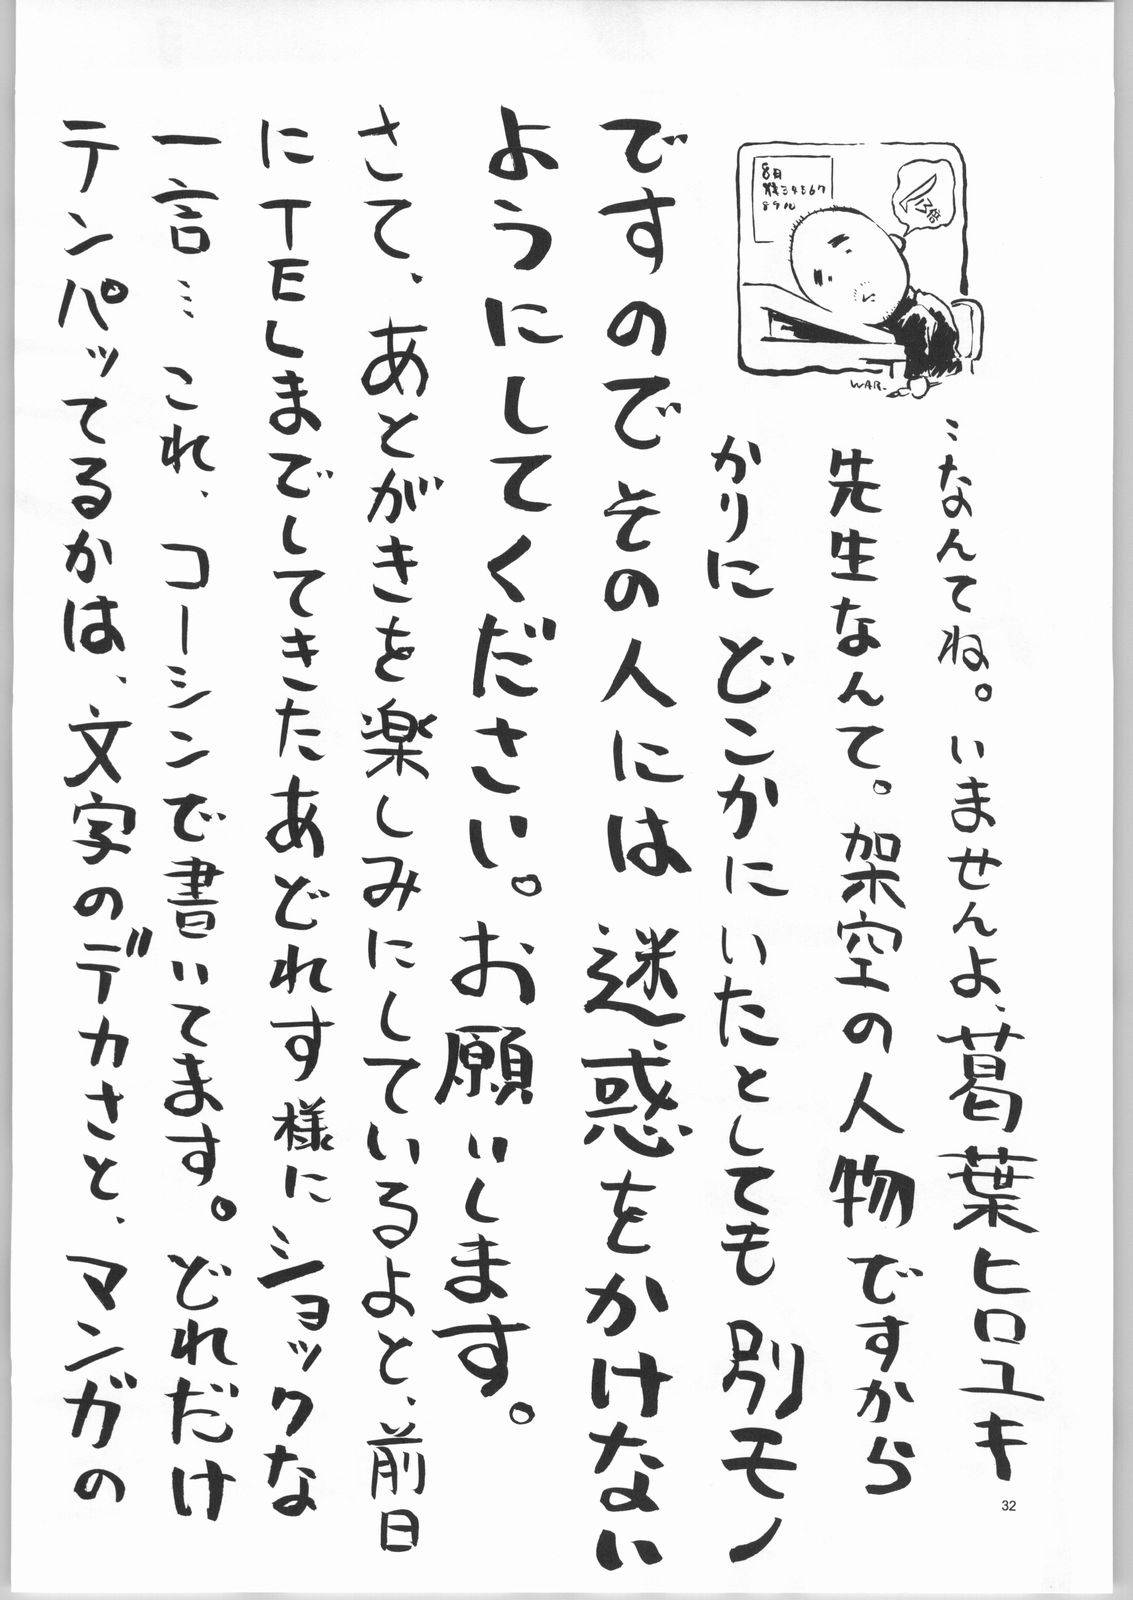 …なんてね。いませんよ、葛葉ヒロユキ
先生なんて。架空の人物ですから
かりにどこかにいたとしても別モノ
ですのでその人には迷惑をかけない
ようにしてください。お願いします。
さて、あとがきを楽しみにしているよと、前日
にTELまでしてきたあどれす様にショックな
一言… これ、コーシンで書いてます。どれだけ
テンパッてるかは、文字のデカさと、マンガの
8月
WAR.
32